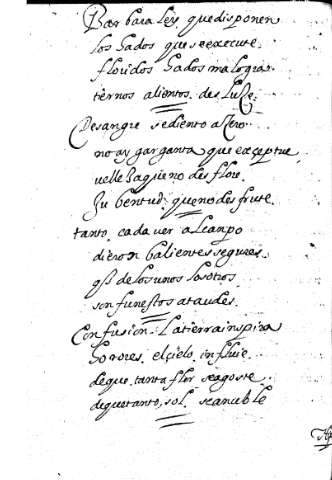 Barbara ley, que disponen
los hados que se execute.
floridos hados malogra
tiernos alientos de luze.
De sangre sediento azero
no ay garganta que exceptue
belleza que no desflore
Jubentud que no desfrute.
tanto cadaver al canpo
dieron balientes segures.
qe de los unos los otros
son funestos ataudes.
Confusion la tierra inspira
horores, el cielo influie
de que tanta flor se agoste.
de que tanto sol se anuble